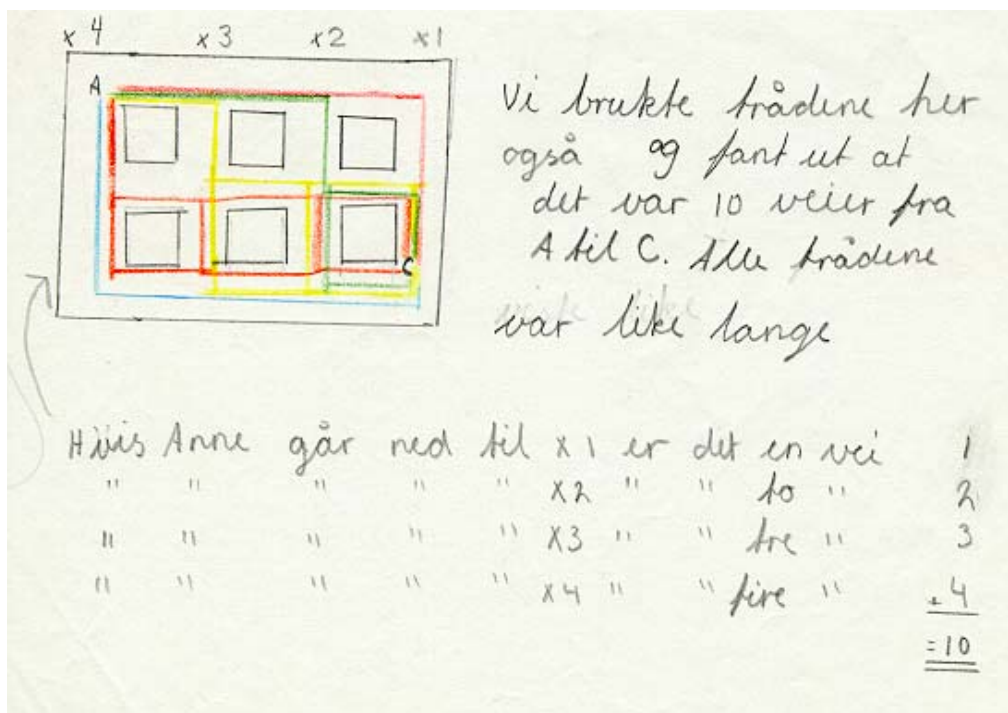 x 4 x 3 x 2 x 1
A
C
Vi brukte trådene her
også og fant ut at
det var 10 veier fra
A til C. Alle trådene
var like lange
Hvis Anne går ned til x 1 er det en vei 1
" " " " " x2 " " to " 2
" " " " " x3 " " tre " 3
" " " " " x4 " " fire " + 4
= 10